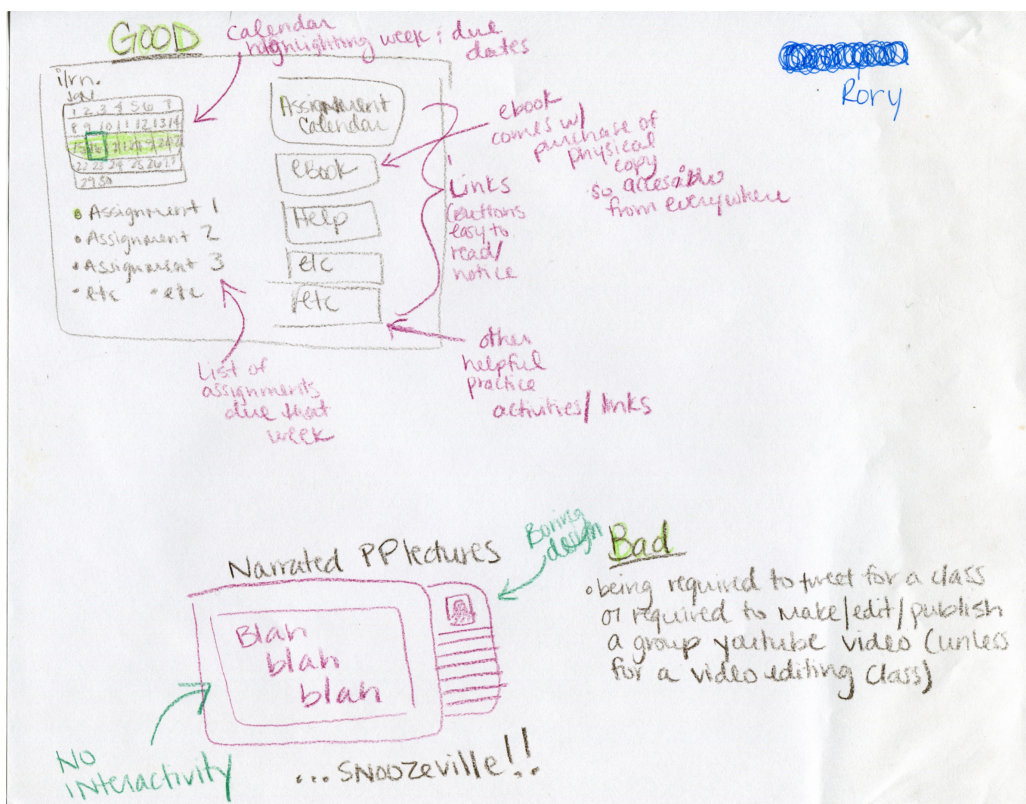 GOOD
calendar
highlighting week & due
dates
Rory
i/rn.
1 2 3 4 5 6 7
8 9 10 11 12 13 14
22 23 24 25 26 27
29 30
• Assignment 1
• Assignment 2
• Assignment 3
• etc • etc
Assignment
Calendar
eBook
Help
etc
etc
ebook
comes w/
purchase of
physical
copy
so accesible
from everywhere
Links
buttons
easy to
read/
notice
other
helpful
practice
activities/links
List of
assignments
due that
week
Narrated PP lectures
Boring
design
Blah
blah
blah
NO
INteractivity
...SNOOZEville!!
Bad
• being required to tweet for a class
or required to make/edit/publish
a group youtube video (unless
for a video editing class)